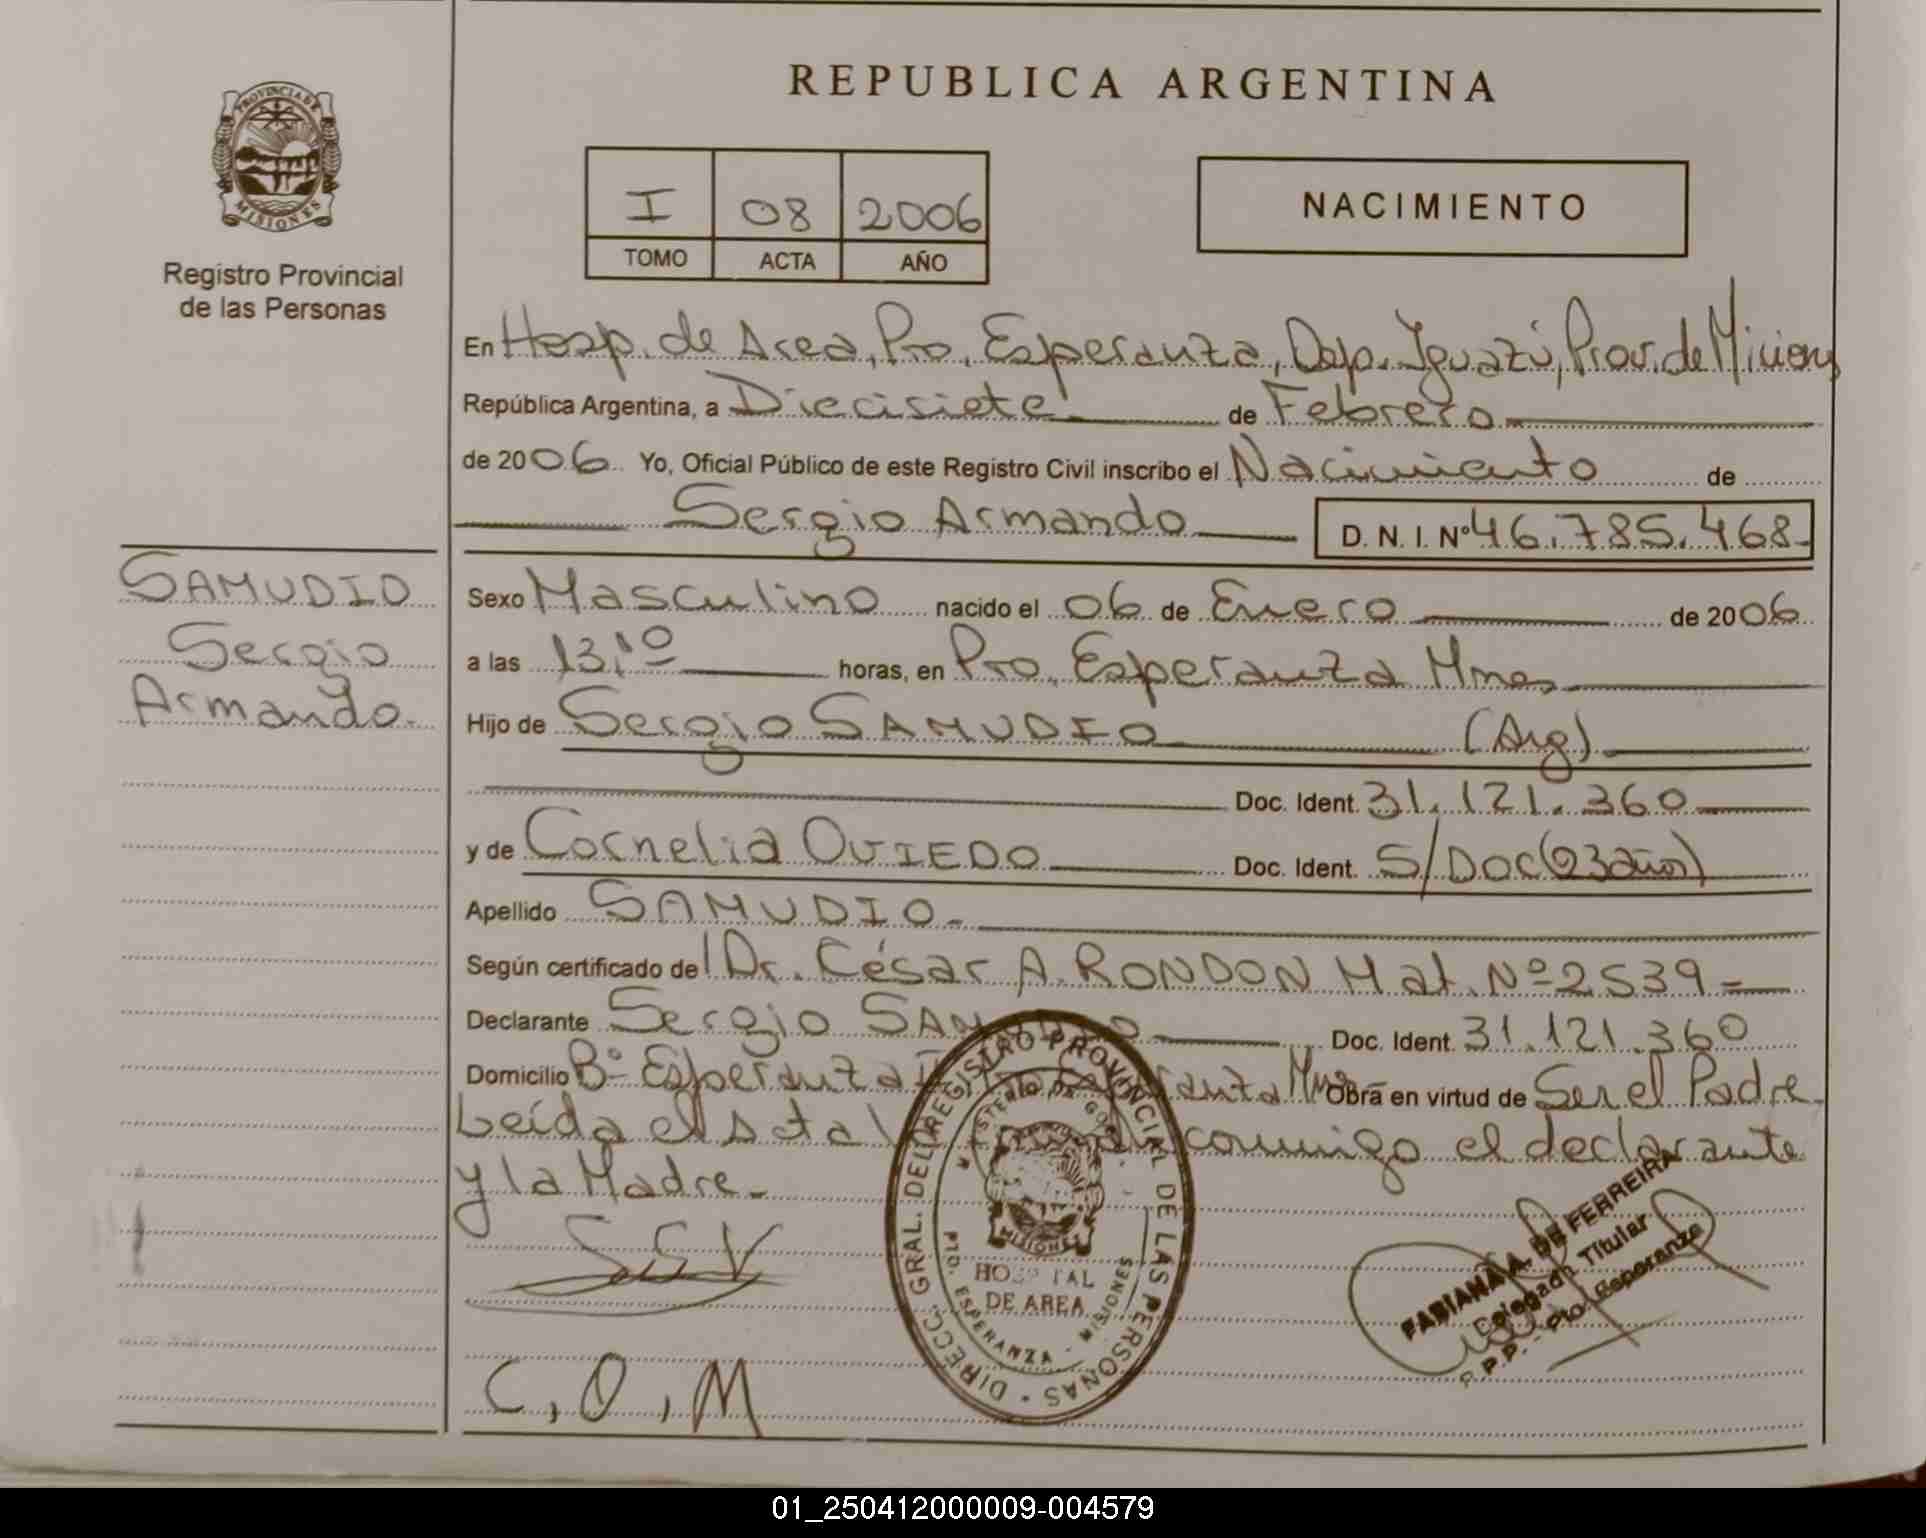 REPUBLICA ARGENTINA
PROVINCIA DE
MISIONES
Registro Provincial
de las Personas
I 08 2006
TOMO ACTA AÑO
NACIMIENTO
En Hosp. de Area, Pto. Esperanza, Dep. Iguazú, Prov. de Misiones
República Argentina, a Diecisiete de Febrero
de 2006 Yo, Oficial Público de este Registro Civil inscribo el Nacimiento de
Sergio Armando D. N. I. Nº 46.785.468
SAMUDIO
Sergio
Armando.
Sexo Masculino nacido el 06 de Enero de 2006
a las 13,10 horas, en Pto. Esperanza Mnes
Hijo de Sergio SAMUDIO (Arg)
Doc. Ident. 31.121.360
y de Cornelia OVIEDO Doc. Ident. S/DOC (23 años)
Apellido SAMUDIO
Según certificado del Dr. César A. RONDON Mat. Nº 2539
Declarante Sergio SAMUDIO Doc. Ident. 31.121.360
Domicilio Bº Esperanza Esperanza Mnes Obra en virtud de Ser el Padre.
Leída el Acta conmigo el declarante
y la Madre.
SSV
C, O, M
DIRECC. GRAL. DEL REGISTRO PROVINCIAL DE LAS PERSONAS
MINISTERIO DE GOB.
MISIONES
HOSPITAL
DE AREA
PTO. ESPERANZA - MISIONES
FABIANA A. DE FERREIRA
Delegada Titular
R.P.P. - Pto. Esperanza
01_250412000009-004579